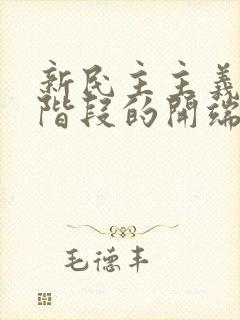 新民主主義
階段的開端
毛德丰